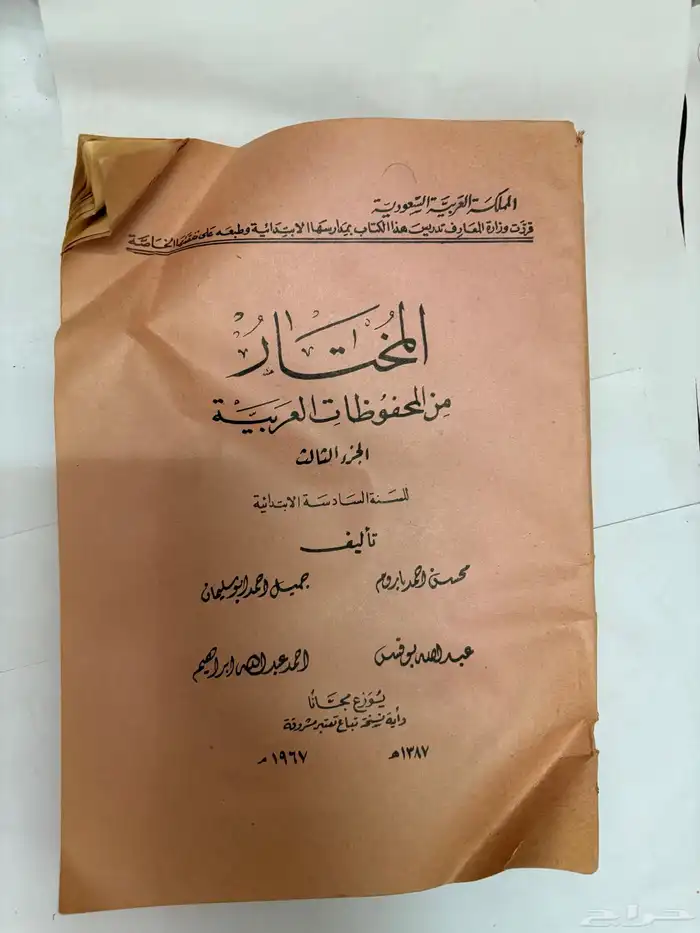 المملكة العربية السعودية
قررت وزارة المعارف تدريس هذا الكتاب بمدارسها الابتدائية وطبعه على نفقتها الخاصة
المُختَارُ
مِنَ المحفُوظَاتِ العَرَبيَّة
الجزء الثالث
للسنة السادسة الابتدائية
تأليف
محسن احمد باروم جميل احمد ابو سليمان
عبد الله بوقس احمد عبد الله ابراهيم
يُوَزع مجَّانًا
وأية نسخة تباع تعتبر مسروقة
١٣٨٧هـ ١٩٦٧م
حراج